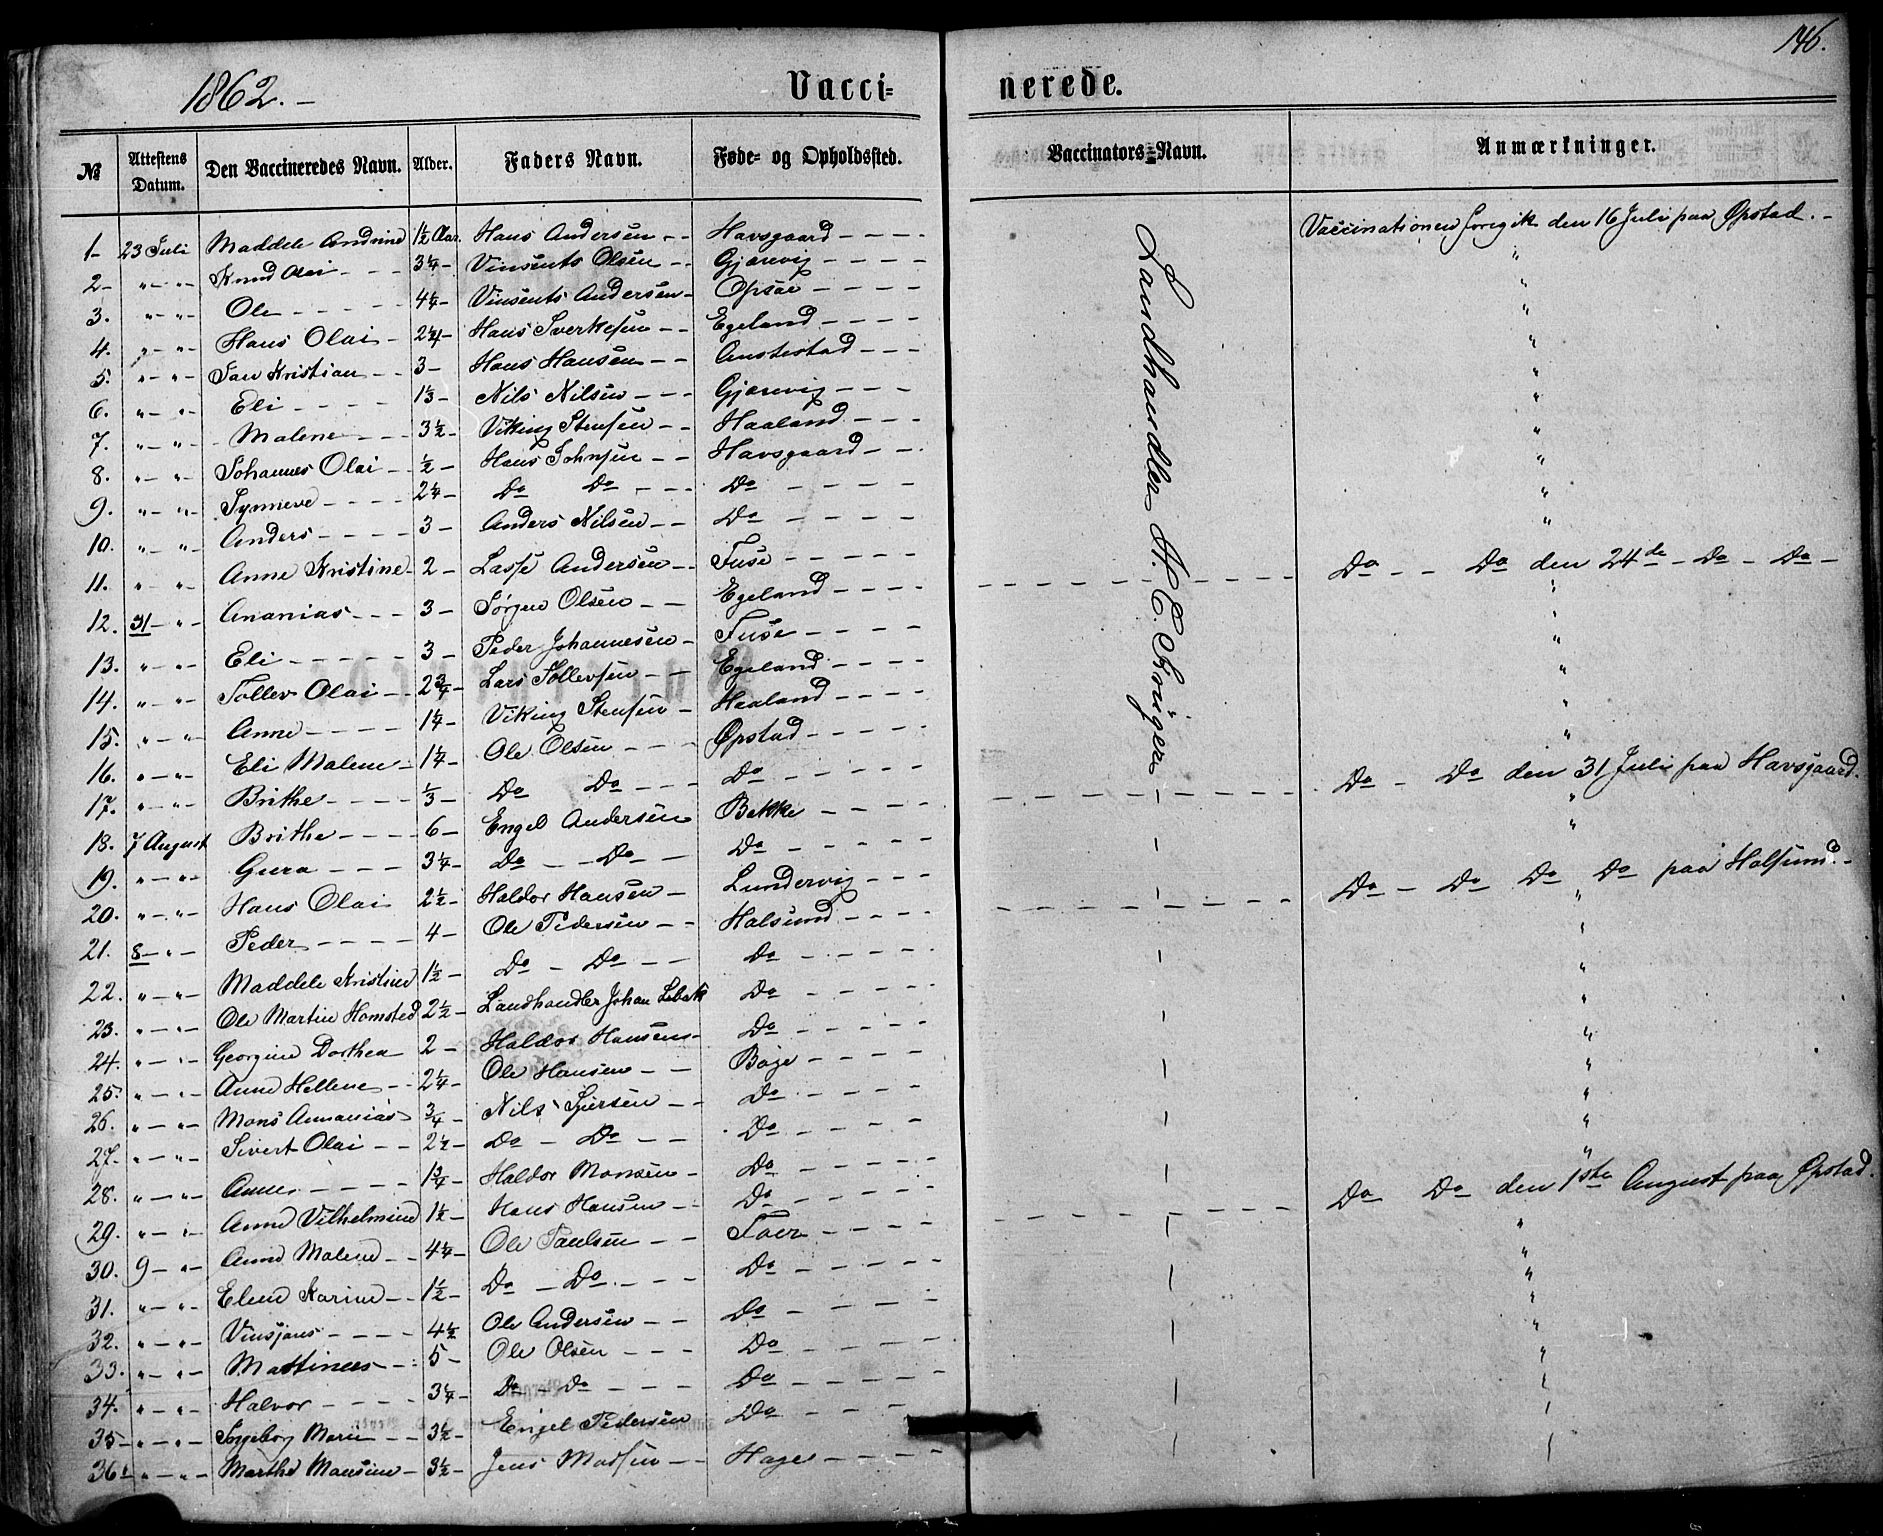 146.
1862. –
Vacci= nerede.
№ | Attestens Datum. | Den Vaccineredes Navn. | Alder. | Faders Navn. | Føde- og Opholdssted. | Vaccinators=Navn. | Anmærkninger.
Landhandler H. C.
1 – 23 Juli Maddele Andrine 1½ Aar. Hans Andersen – – Havsgaard – – – – Vaccinationen foregik den 16 Juli paa Øpstad. –
2 – " – " – Knud Olai – – – 3¼ – Vinsents Olsen – – Gjærevig – – – – "
3. " – " – Ole – – – – 4¼ – Vinsents Andersen – Opsar – – – – "
4. " – " – Hans Olai – 2¼ – Hans Sverkesen – – Egeland – – – – "
5. " – " – Jan Kristian – – 3 – Hans Hansen – – – – – "
6. " – " – Eli – – – – 1⅓ – Nils Nilsen – – – Gjærevig – – – "
7. " – " – Malene – – – 3½ – Viking Stensen – – Haaland – – – – "
8. " – " – Johannes Olai – – ½ – Hans Johnsen – – Havsgaard – – – "
9. " – " – Synneve – – – – 2¼ – Do Do – – – Do – – – – "
10. " – " – Anders – – – – 3 – Anders Nilsen – – Do – – – – "
11. " – " – Anne Kristine – 2 – Lasse Andersen – – Fuse – – – – – Do – – Do den 24de – Do – Do –
12. 31 – " – Ananias – – – 3 – Sørgen Olsen – – Egeland – – – – "
13. " – " – Eli – – – – – 3 – Peder Johannesen – Fuse – – – – "
14. " – " – Tollev Olai – 2¾ – Lars Tollevsen – – Egeland – – – – "
15. " – " – Anne – – – – 1¼ – Viking Stensen – Haaland – – – – "
16. " – " – Eli Malene – 1¼ – Ole Olsen – – – Øpstad – – – – "
17. " – " – Brithe – – – – ⅓ – Do Do – – – Do – – – – Do – Do den 31 Juli paa Havsgaard.
18. 7 August Brithe – – – – 6 – Engel Andersen Bekke – – – – "
19. " – " – Gura – – – – 3¼ – Do – – Do – – Do – – – – "
20. " – " – Hans Olai 2½ – Haldor Hansen – Lundervig – – – Do – Do Do Do paa Halsund. –
21. 8 – " – Peder – – – – 4 – Ole Pedersen – – Halsund – – – – "
22. " – " – Maddele Kristine 1½ – Do – Do – – Do – – – – "
23. " – " – Ole Martin Homsted 2½ – Landhandler Johan Do – – – – "
24. " – " – Georgine Dorthea 2 – Haldor Hansen – Do – – – – "
25. " – " – Anne Hellene – – 2¼ – Ole Hansen – – Bøge – – – – "
26. " – " – Mons Annanias ¾ – Nils – – Do – – – – "
27. " – " – Sivert Olai – – 2½ – Do – Do – – Do – – – – "
28. " – " – Anne – – – – 1¾ – Haldor Monsen – Do – – – – "
29. " – " – Anne Vilhelmine 1½ – Hans Hansen – – Do – – – – Do Do den 1ste August paa Øpstad.
30. 9 – " – Anne Malene – – 4¼ – Ole Paulsen – – – – – "
31. " – " – Elene Karine – – 1½ – Do – Do – – – Do – – – – "
32. " – " – Vinsjans – – – – 4½ – Ole Andersen – – Do – – – – "
33. " – " – Mattineus – – 5 – Ole Olsen – – – Do – – – – "
34. " – " – Halvor – – – – 3¼ – Do – Do – – – Do – – – – "
35 – " – " – Ingeborg Marie – – 3½ – Engel Pedersen Do – – – –
36. " – " – Marthe Monsine – 3½ – Jens Madsen – – Hage – – – –